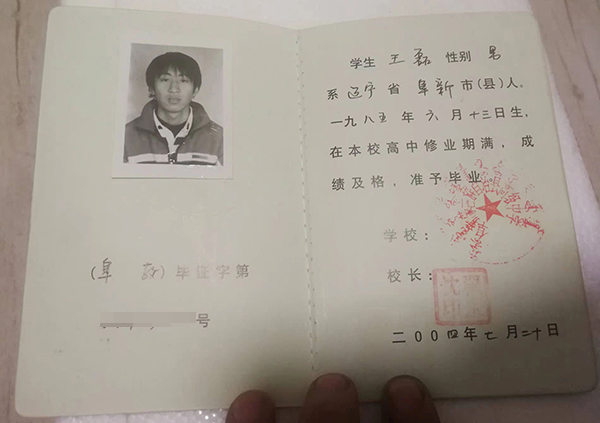 (阜 ) 毕证字第
号
学生 王磊 性别 男
系 辽宁 省 阜新 市(县)人。
一九八五 年 六 月 十三日生,
在本校高中修业期满,成
绩及格,准予毕业
学校:
校长:
二00四年七月二十日